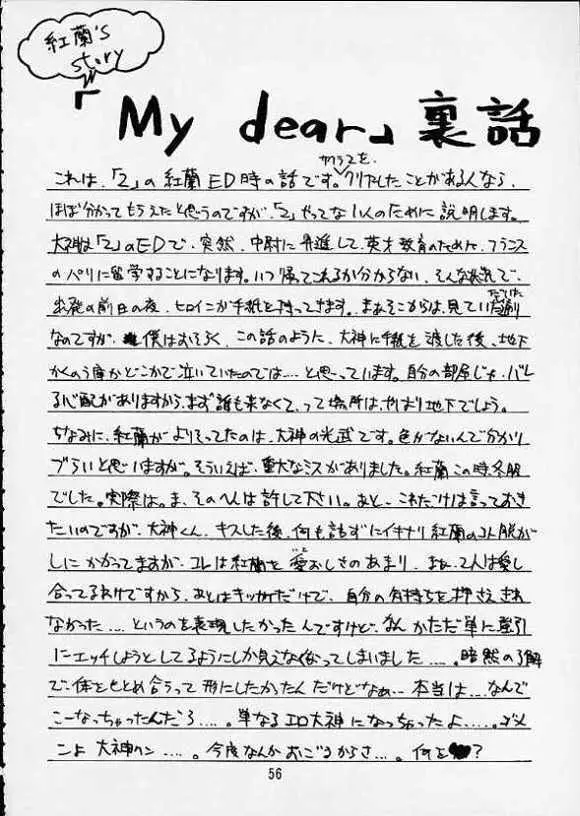 紅蘭's
story
「My dear」裏話
クリアスを
これは、「2」の紅蘭ED時の話です。クリアしたことがある人なら、
ほぼ分かってもらえたと思うのですが、「2」やってない人のために説明します。
大神は「2」のEDで、突然、中尉に昇進して、英才教育のために、フランス
のパリに留学することになります。いつ帰ってこれるか分からない、そんな状況で、
出発の前日の夜、ヒロインが手紙を持ってきます。まあそこからは、見ていただいた通り
なのですが、僕はおそらく、この話のように、大神に手紙を渡した後、地下
かくのう庫かどこかで泣いていたのでは…と思っています。自分の部屋じゃ、バレ
る心配がありますから、まず誰も来なくて、って場所は、やはり地下でしょう。
ちなみに、紅蘭がよりそってたのは、大神の光武です。色がないんで分かり
づらいと思いますが。そういえば、重大なミスがありました。紅蘭この時、冬服
でした。実際は。ま、そのへんは許して下さい。あと、これだけは言っておき
たいのですが、大神くん、キスした後、何も話さずにイキナリ紅蘭のコト脱が
しにかかってますが、コレは紅蘭を愛おしさのあまり、まぁ、2人は愛し
合ってるわけですから、あとはキッカケだけで、自分の気持ちを押さえきれ
なかった…というのを表現したかったんですけど、なんかただ単に強引
にエッチしようとしてるようにしか見えなくなってしまいました…。暗黙の了解
で、体をもとめ合うって形にしたかったんだけどなぁ…本当は…なんで
こーなっちゃったんだろ…。単なるエロ大神になっちゃったよ…。ゴメ
ンよ大神クン…。今度なんかおごるからさ…。何を?
56